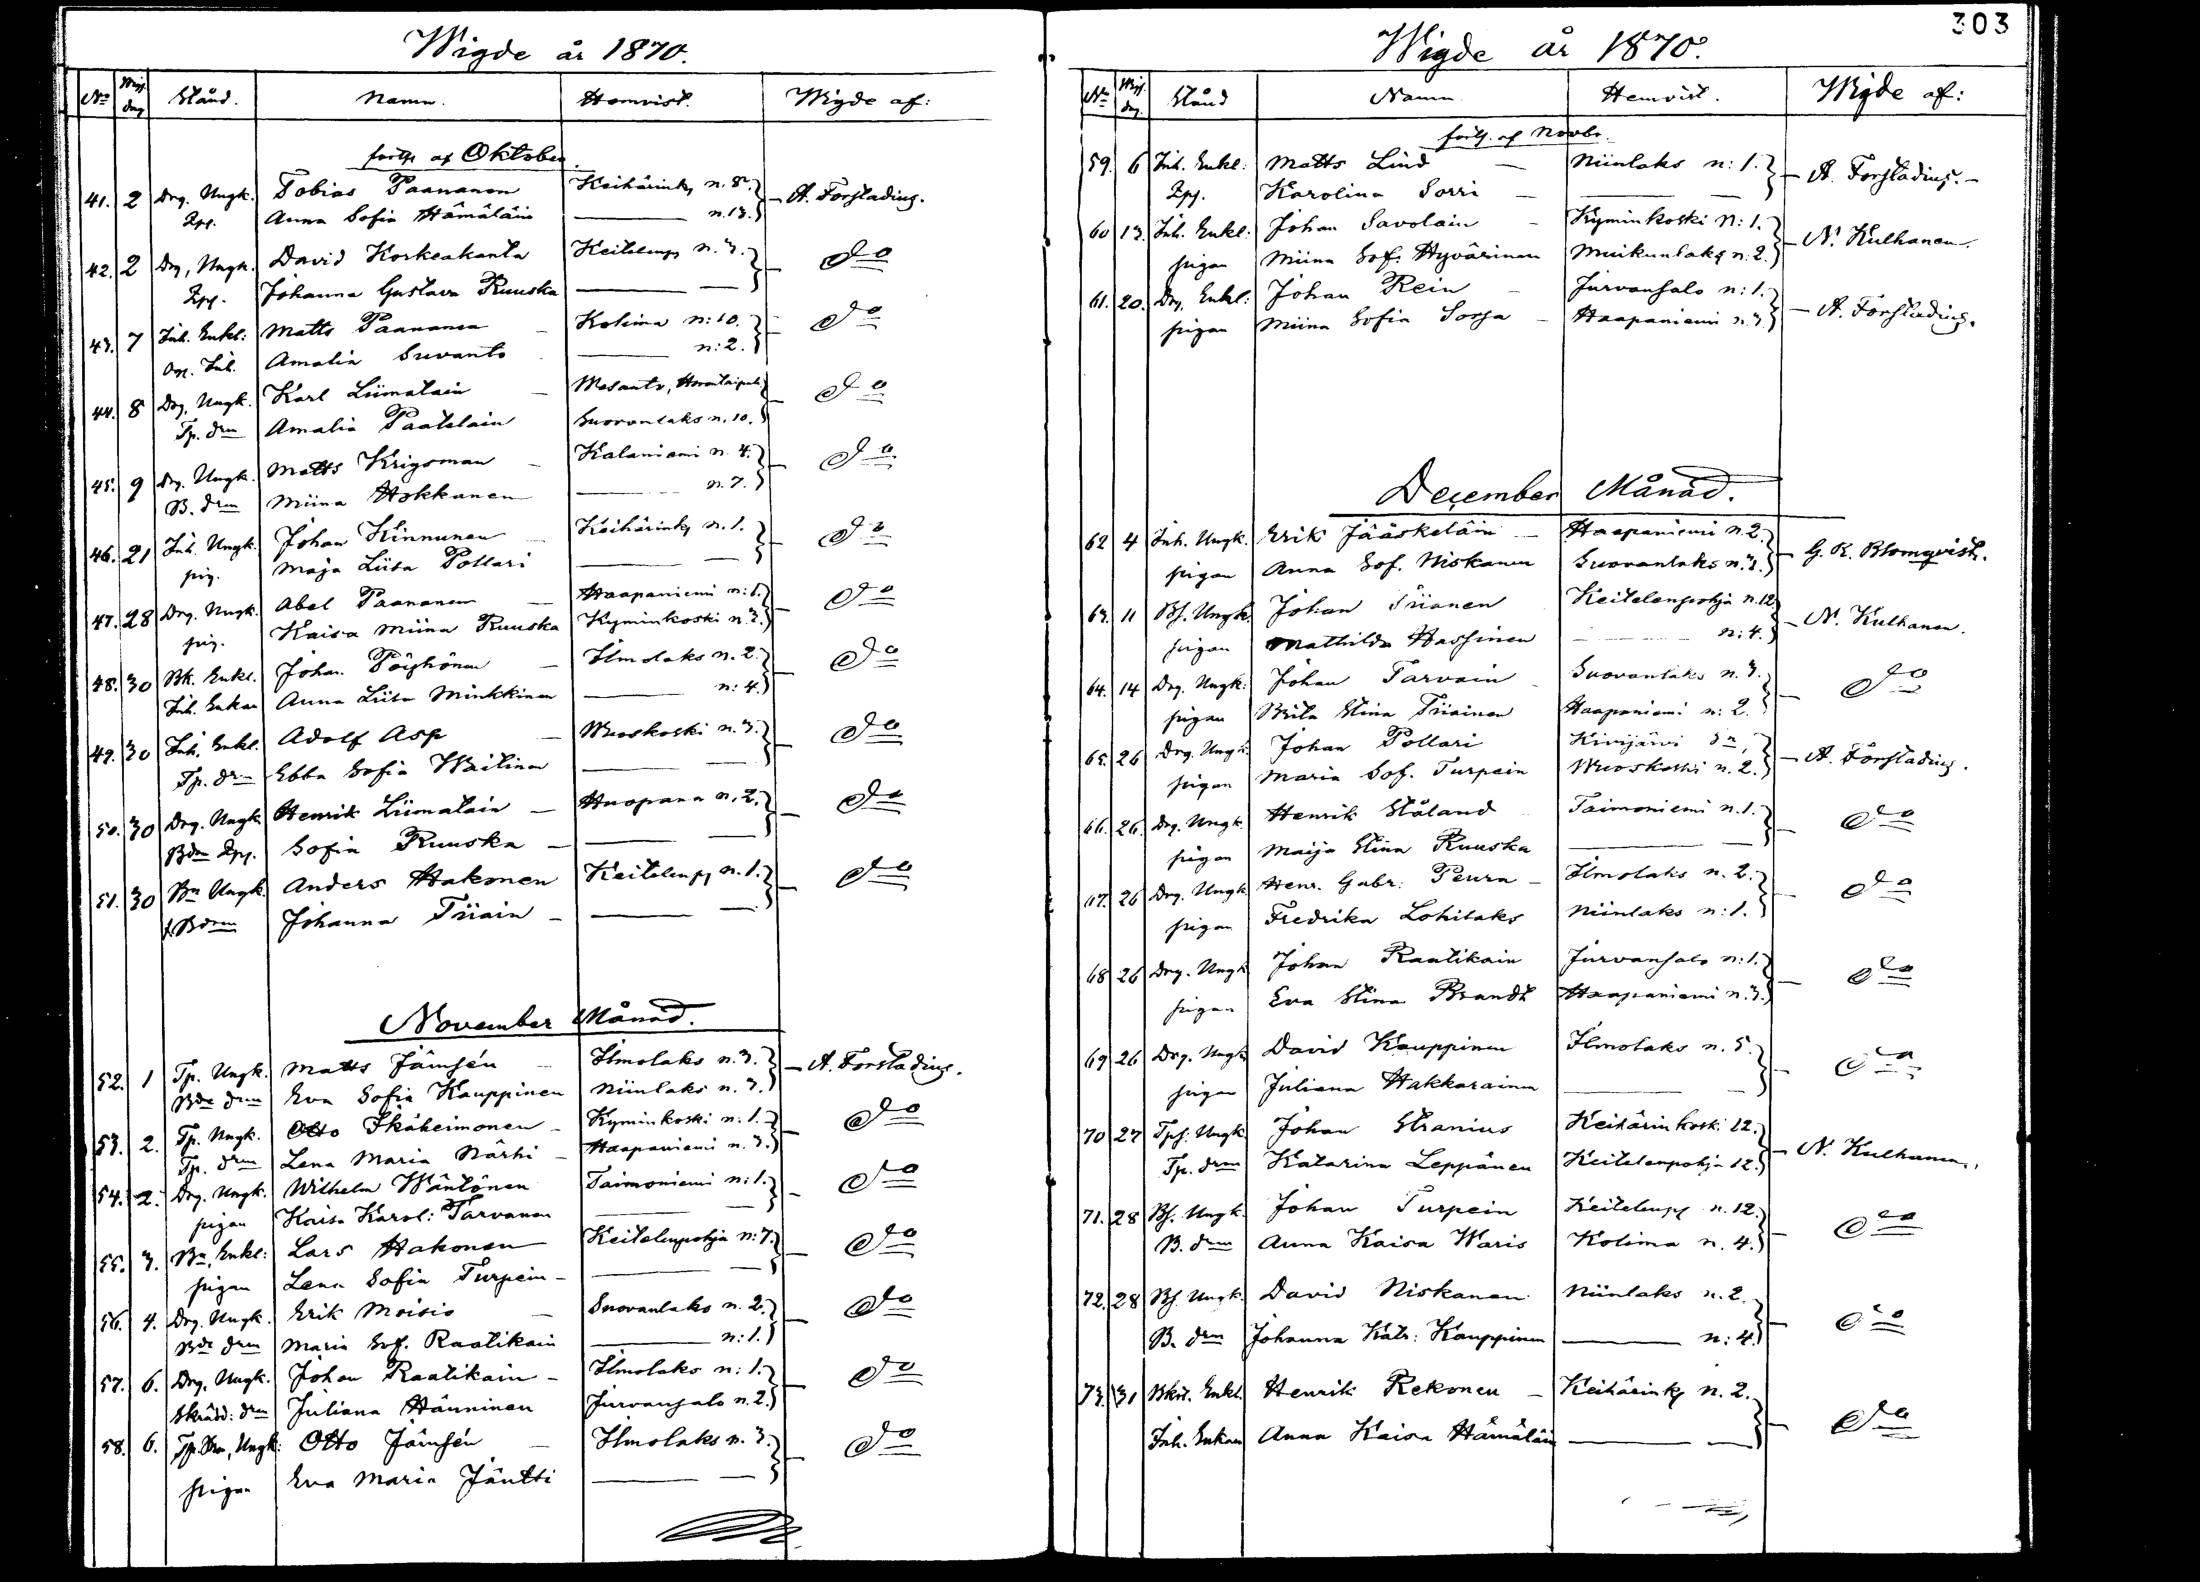 Wigde år 1870.
No Wig. dag Stånd. Namn. Hemvist. Wigde af:
forts. af Oktober.
41. 2 Drg. Ungk. Tobias Paananen Keihärinkj n. 8. — A. Forstadius.
Zpg. Anna Sofia Hämäläin — n. 13.
42. 2 Drg. Ungk. David Korkeakanta Keitelenpj n. 3. — do
Zpg. Johanna Gustava Ruuska —
43. 7 Inh. Enkl: Matts Paananen — Kolima n: 10. — do
Inh. Amalia Suvanto — n: 2.
44. 8 Drg. Ungk. Karl Liimatain — Wesanto, — do
Tp. drn Amalia Paatelain Suovanlaks n. 10.
45. 9 Drg. Ungk. Matts Krigsman — Kalaniemi n. 4. — do
B. drn Miina Hokkanen — n. 7.
46. 21 Inh. Ungk. Johan Kinnunen — Keihärinkj n. 1. — do
pig. Maja Liisa Pollari —
47. 28 Drg. Ungk. Abel Paananen — Haapaniemi n: 1. — do
pig. Kaisa Miina Ruuska Kyminkoski n. 3.
48. 30 Bk. Enkl. Johan Pöyhönen — Ilmolaks n. 2. — do
Inh. Enkan Anna Liisa Minkkinen — n: 4.
49. 30 Inh. Enkl. Adolf Asp — Wuoskoski n. 3. — do
Tp. drn Ebba Sofia Waitinen —
50. 30 Drg. Ungk. Henrik Liimatain — Huopana n. 2. — do
Bdn Zpg. Sofia Ruuska —
51. 30 Bn Ungk. Anders Hakonen Keitelenpj n. 1. — do
Bdrn Johanna Tiiain —
November Månad.
52. 1 Tp. Ungk. Matts Jämsén — Ilmolaks n. 3. — A. Forstadius.
Bde drn Eva Sofia Kauppinen Niinlaks n. 3.
53. 2. Tp. Ungk. Otto Ikäheimonen — Kyminkoski n: 1. — do
Tp. drn Lena Maria Närhi — Haapaniemi n. 3.
54. 2. Drg. Ungk. Wilhelm Wäntönen Taimoniemi n: 1. — do
pigan Kaisa Karol: Tarvanen —
55. 3. Bn, Enkl: Lars Hakonen Keitelenpohja n: 7. — do
pigan Lena Sofia Turpein —
56. 4. Drg. Ungk. Erik Moisio — Suovanlaks n. 2. — do
Bde drn Maria Sof. Raatikain — n: 1.
57. 6. Drg. Ungk. Johan Raatikain — Ilmolaks n: 1. — do
Skrädd: drn Juliana Hänninen Jurvansalo n. 2.
58. 6. Tp. Sn, Ungk: Otto Jämsén — Ilmolaks n. 3. — do
pigan Eva Maria Jäntti —
303
Wigde år 1870.
No Wig. dag. Stånd Namn. Hemvist. Wigde af:
forts. af Novbr.
59. 6 Inh. Enkl: Matts Lind — Niinlaks n: 1. — A. Forstadius. —
Zpg. Karolina Sorri —
60 13. Inh. Enkl: Johan Savolain — Kyminkoski n: 1. — N. Kulhanen.
pigan Miina Sof. Hyvärinen Muikunlaks n: 2.
61. 20. Drg. Enkl: Johan Rein — Jurvansalo n: 1. — A. Forstadius.
pigan Miina Sofia Sorsa — Haapaniemi n. 3.
December Månad.
62 4 Inh. Ungk. Erik Jääskeläin — Haapaniemi n. 2. — G. R. Blomqvist.
pigan Anna Sof. Niskanen Suovanlaks n. 3.
63. 11 Bs. Ungk. Johan Tiianen Keitelenpohja n. 12 — N. Kulhanen.
pigan Mathilda Hassinen — n: 4.
64. 14 Drg. Ungk: Johan Tarvain Suovanlaks n. 3. — do
pigan Brita Stina Tiiainen Haapaniemi n: 2.
65. 26 Drg. Ungk: Johan Pollari Kivijärvi sn, — A. Forstadius.
pigan Maria Sof. Turpein Wuoskoski n. 2.
66. 26. Drg. Ungk. Henrik Ståland Taimoniemi n. 1. — do
pigan Maija Stina Ruuska —
67. 26 Drg. Ungk Henr. Gabr: Peura — Ilmolaks n. 2. — do
pigan Fredrika Lohilaks Niinlaks n: 1.
68 26 Drg. Ungk Johan Raatikain Jurvansalo n: 1. — do
pigan Eva Stina Brandt Haapaniemi n. 3.
69 26 Drg. Ungk David Kauppinen Ilmolaks n. 5. — do
pigan Juliana Hakkarainen —
70 27 Tps: Ungk. Johan Stranius Keihärinkosk: 12. — N. Kulhanen.
Tp. drn Katarina Leppänen Keitelenpohja 12.
71. 28 Bs. Ungk. Johan Turpein Keitelenpj n. 12. — do
B. drn Anna Kaisa Waris Kolima n. 4.
72. 28 Bs. Ungk. David Niskanen Niinlaks n. 2. — do
B. drn Johanna Katr: Kauppinen — n: 4.
73. 31 Bkst. Enkl. Henrik Rekonen — Keihärinkj n. 2. — do
Inh. Enkan Anna Kaisa Hämäläin —